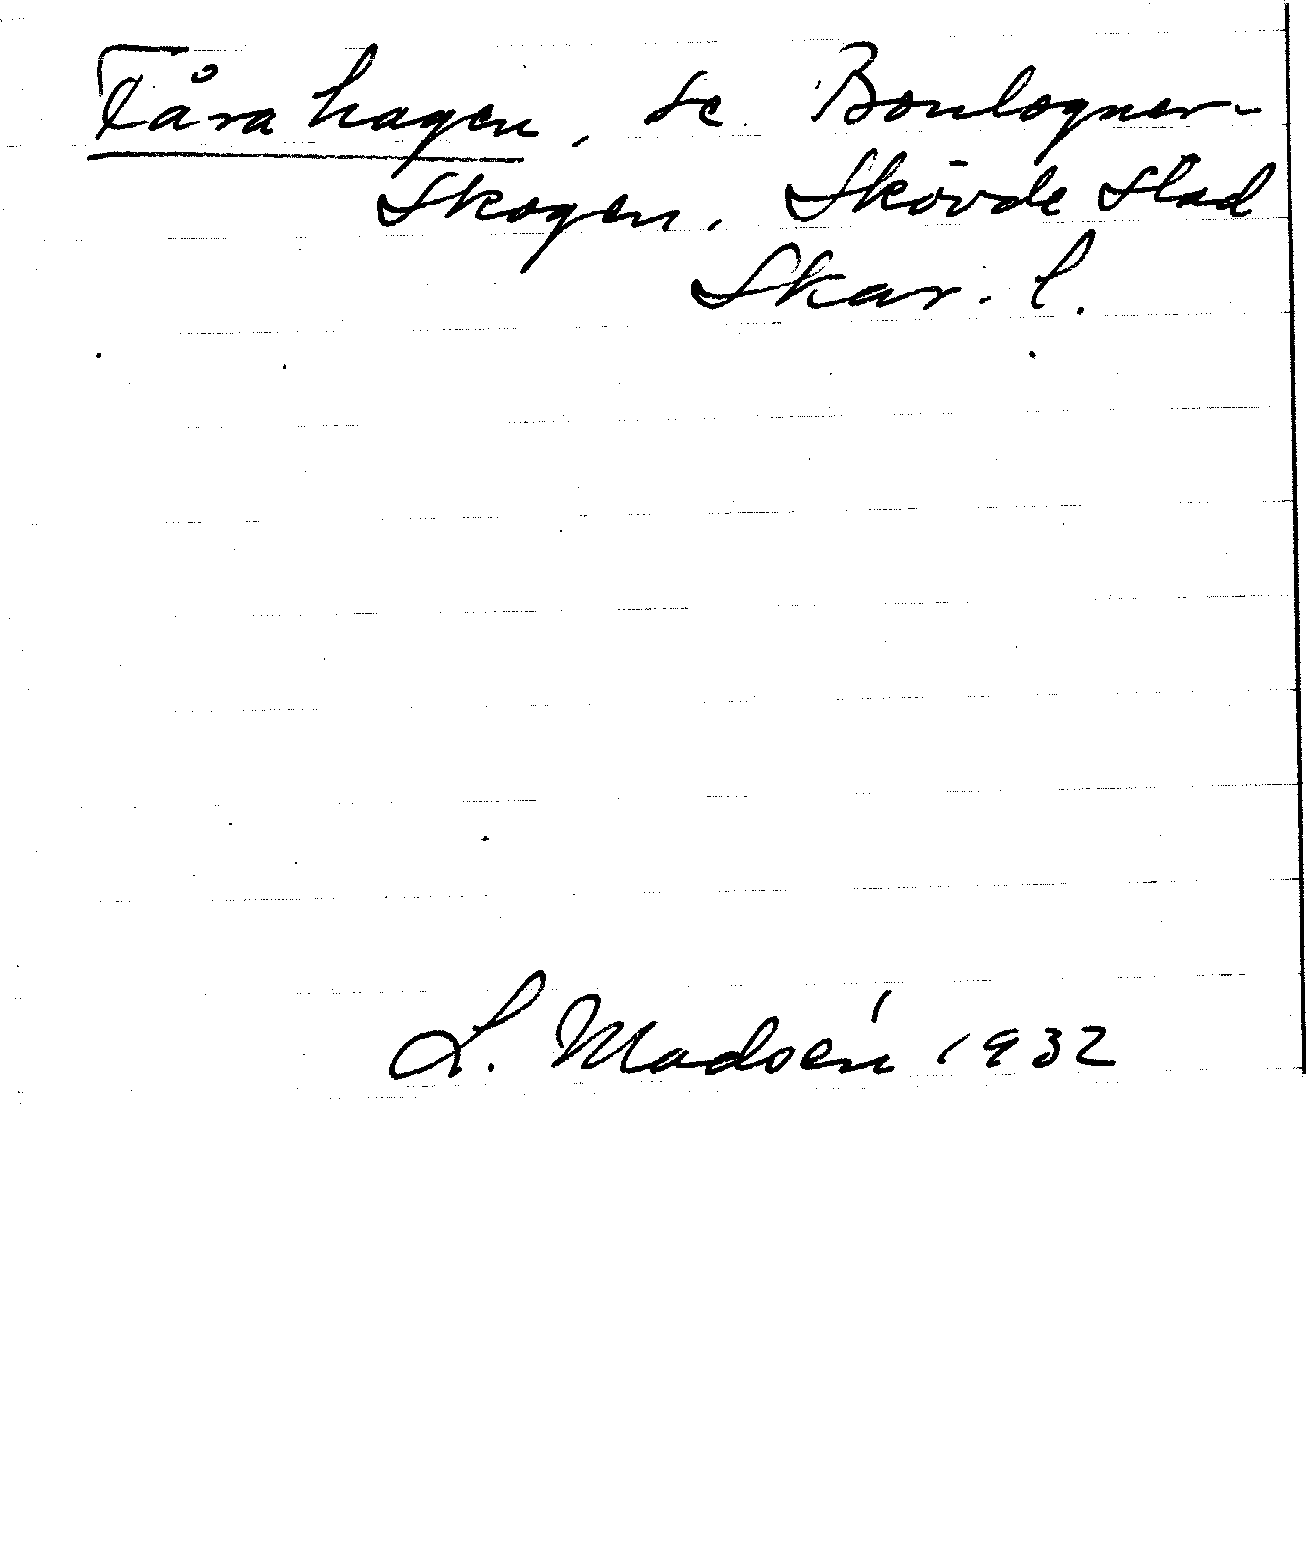 Fårahagen, se Boulogner-
skogen. Skövde stad
Skar. l.
L. Madsén 1932